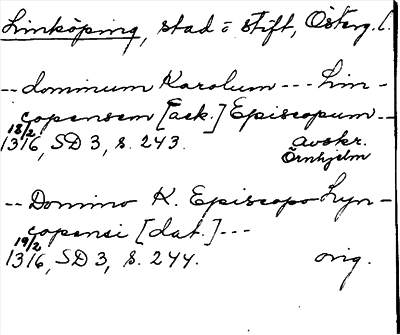 Linköping, stad o stift, Österg. l.
-- dominum Karolum --- Lin-
copensem [ack.] Episcopum --
18/2
1316, SD 3, s. 243. avskr.
Örnhjelm
-- Domino K. Episcopo Lyn-
copensi [dat.] ---
19/2
1316, SD 3, s. 244. orig.